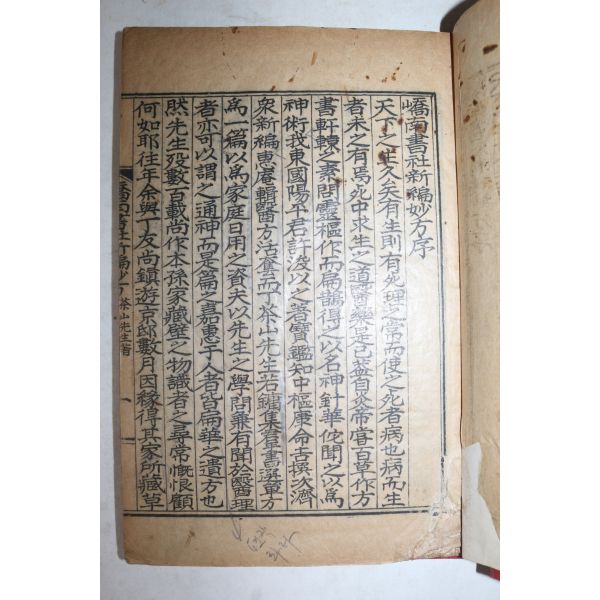 嶠南書社新編妙方序
天下之生久矣有生則有死理之常而使之死者病也病而生
者未之有焉死中求生之道醫藥是已蓋自炎帝嘗百草作方
書軒轅之素問靈樞作而扁鵲得之以名神針華佗聞之以爲
神術我東國陽平君許浚以之著寶鑑知中樞康命吉撰次濟
衆新編惠庵輯醫方活套而丁茶山先生若鏞集羣書選單方
爲一篇以爲家庭日用之資夫以先生之學問兼有聞於醫理
者亦可以謂之通神而是篇之嘉惠于人者皆扁華之遺方也
然先生歿數百載尚作本孫家藏壁之物識者之尋常慨恨顧
何如耶往年余與丁友尚鎭遊京邸數月因緣得其家所藏草
茶山先生著
一